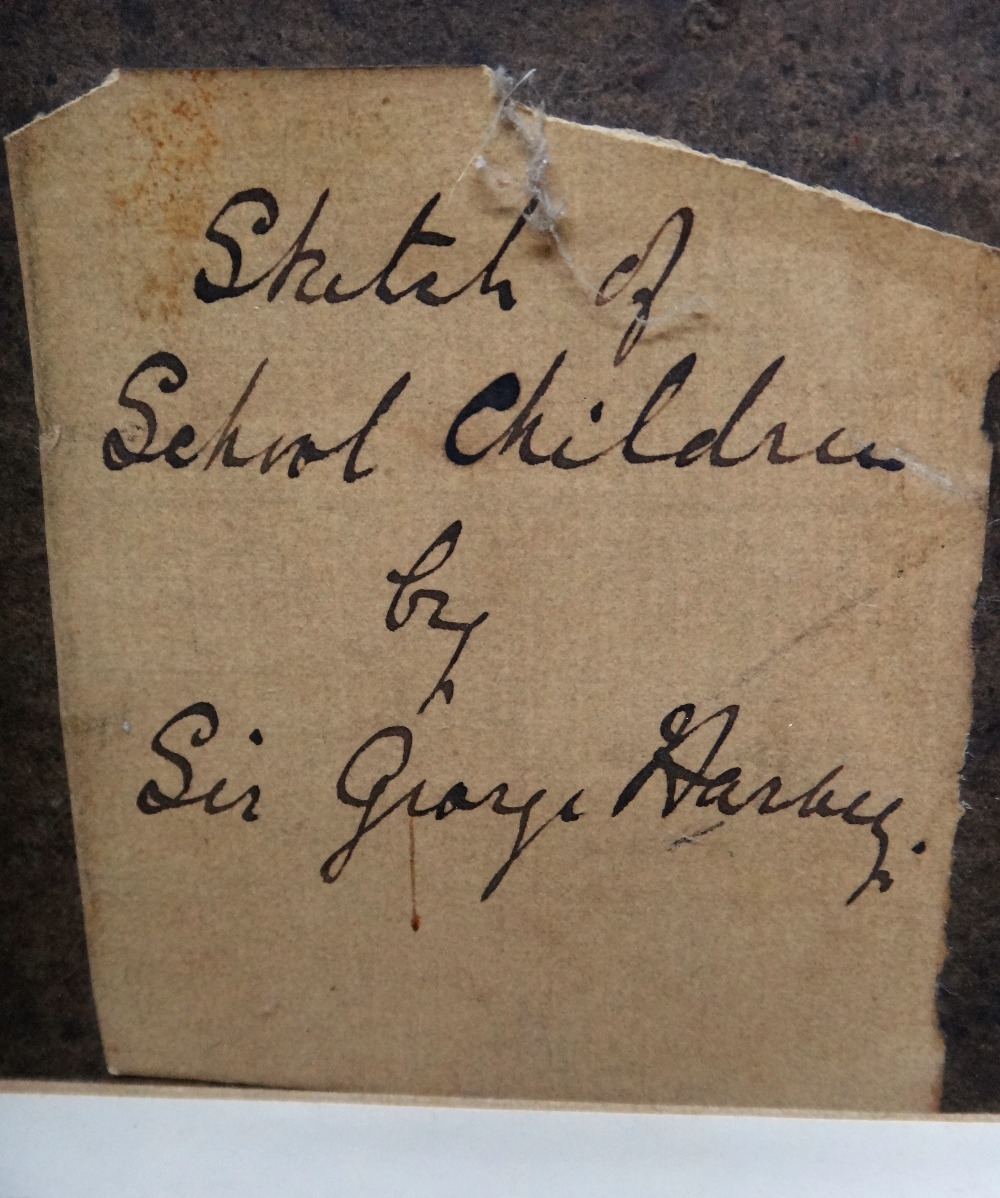 Sketch of
School Children
by
Sir George Harvey.